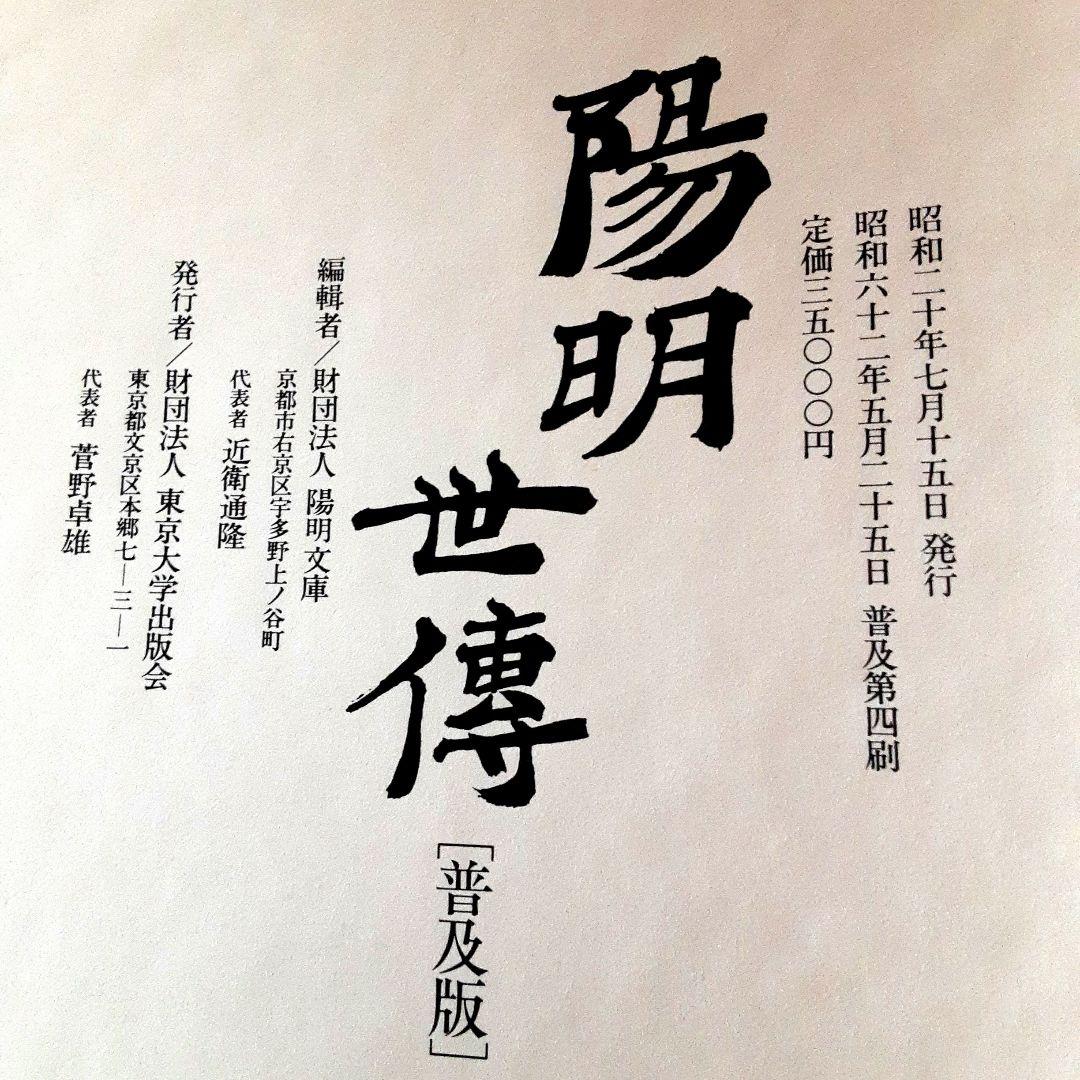 昭和二十年七月十五日 発行
昭和六十二年五月二十五日 普及第四刷
定価三五〇〇〇円
陽明
世傳
[普及版]
編輯者／財団法人 陽明文庫
京都市右京区宇多野上ノ谷町
代表者 近衛通隆
発行者／財団法人 東京大学出版会
東京都文京区本郷七—三—一
代表者 菅野卓雄